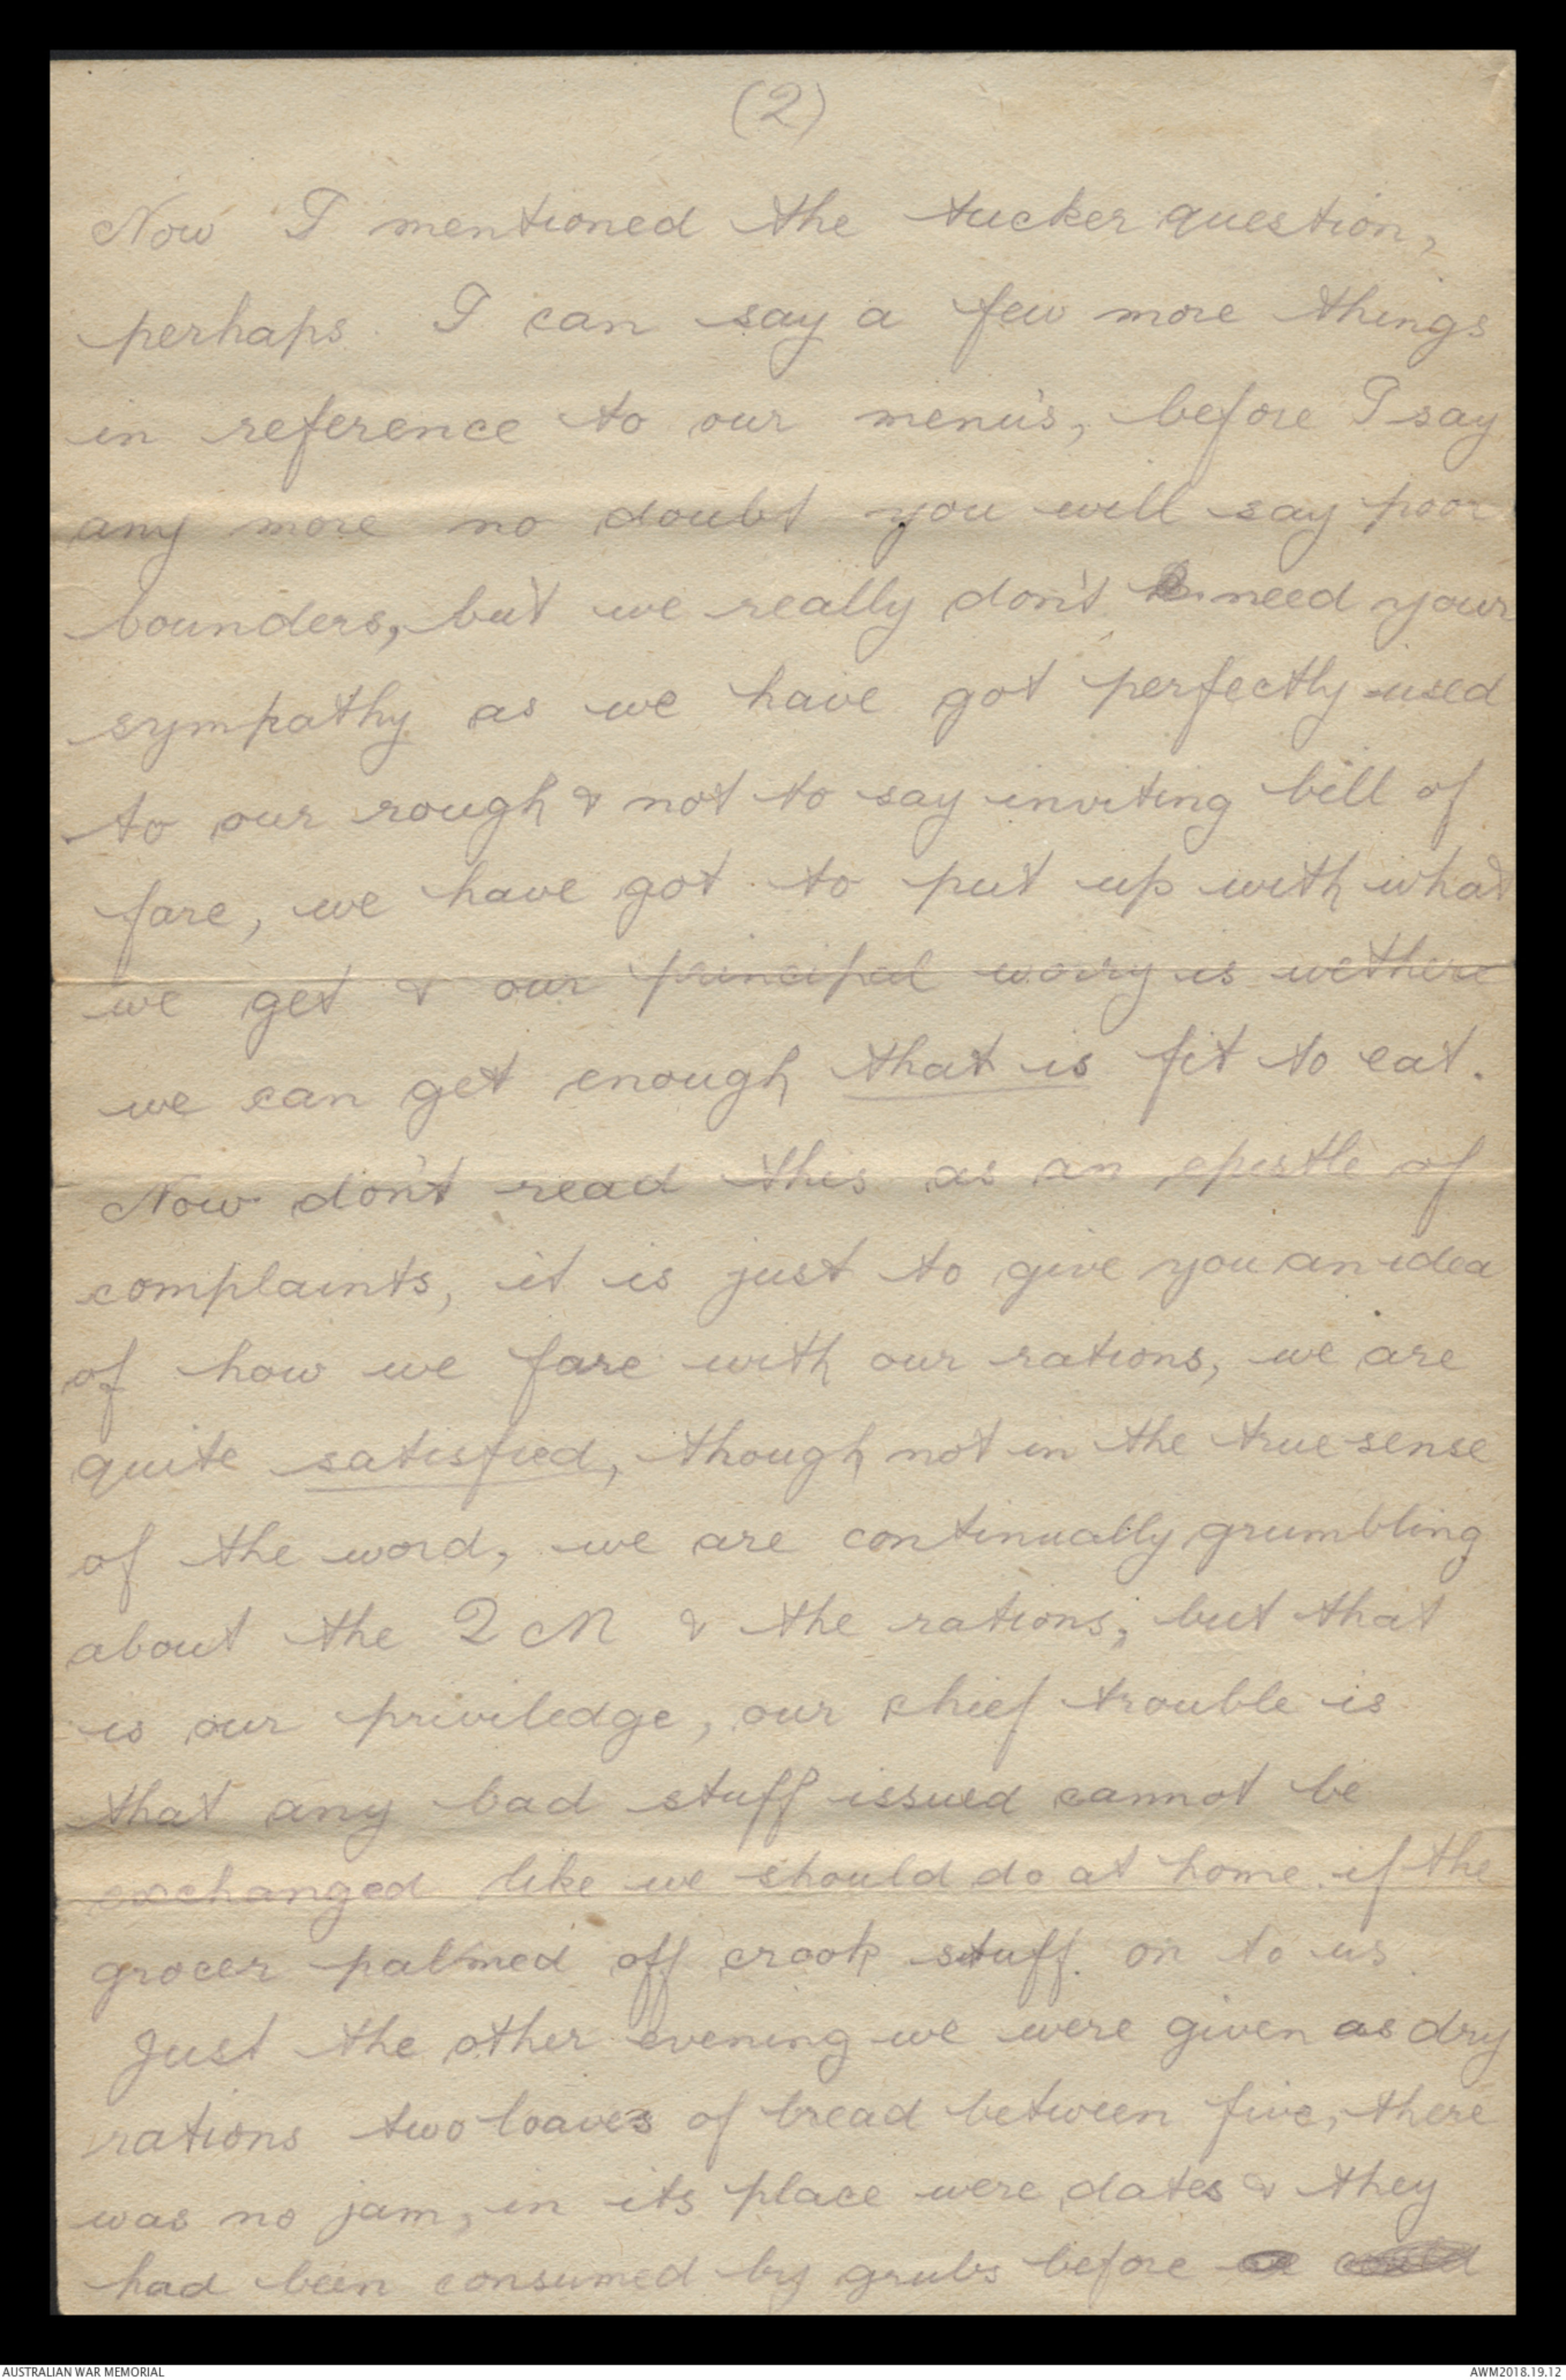 (2)
Now I mentioned the tucker question,
perhaps I can say a few more things
in reference to our menu's, before I say
any more no doubt you will say poor
bounders, but we really don't need your
sympathy as we have got perfectly used
to our rough & not to say inviting bill of
fare, we have got to put up with what
we get & our principal worry is wethere
we can get enough that is fit to eat.
Now don't read this as an epistle of
complaints, it is just to give you an idea
of how we fare with our rations, we are
quite satisfied, though not in the true sense
of the word, we are continually grumbling
about the Q M & the rations, but that
is our priviledge, our chief trouble is
that any bad stuff issued cannot be
exchanged like we should do at home if the
grocer palmed off crook stuff on to us
Just the other evening we were given as dry
rations two loaves of bread between five, there
was no jam, in its place were dates & they
had been consumed by grubs before
AUSTRALIAN WAR MEMORIAL
AWM2018.19.12